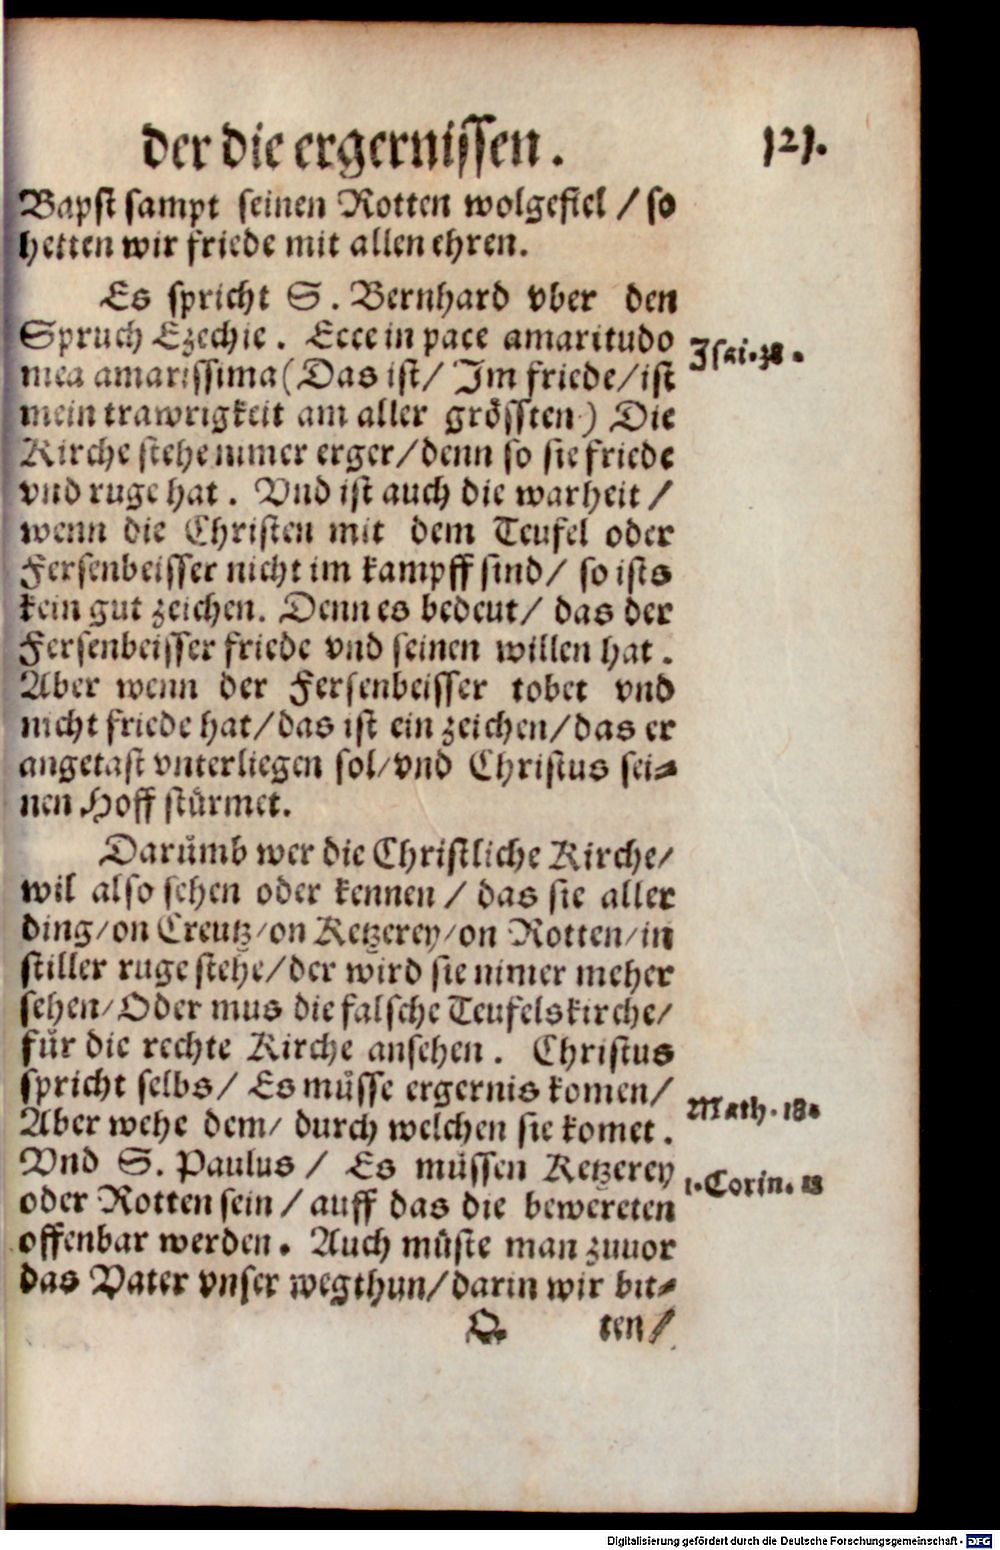 der die ergernissen. 121.
Bapst sampt seinen Rotten wolgefiel / so
hetten wir friede mit allen ehren.
Es spricht S. Bernhard vber den
Spruch Ezechie. Ecce in pace amaritudo
mea amarissima (Das ist / Im friede / ist
mein trawrigkeit am aller grössten) Die
Kirche stehe nimer erger / denn so sie friede
vnd ruge hat. Vnd ist auch die warheit /
wenn die Christen mit dem Teufel oder
Fersenbeisser nicht im kampff sind / so ists
kein gut zeichen. Denn es bedeut / das der
Fersenbeisser friede vnd seinen willen hat.
Aber wenn der Fersenbeisser tobet vnd
nicht friede hat / das ist ein zeichen / das er
angetast vnterliegen sol / vnd Christus sei⸗
nen Hoff stürmet.
Darümb wer die Christliche Kirche /
wil also sehen oder kennen / das sie aller
ding / on Creutz / on Ketzerey / on Rotten / in
stiller ruge stehe / der wird sie nimer meher
sehen / Oder mus die falsche Teufelskirche /
für die rechte Kirche ansehen. Christus
spricht selbs / Es müsse ergernis komen /
Aber wehe dem / durch welchen sie komet.
Vnd S. Paulus / Es müssen Ketzerey
oder Rotten sein / auff das die bewereten
offenbar werden. Auch müste man zuuor
das Vater vnser wegthun / darin wir bit⸗
Q ten /
Isai. 38.
Math. 18.
1. Corin. 11
Digitalisierung gefördert durch die Deutsche Forschungsgemeinschaft - DFG